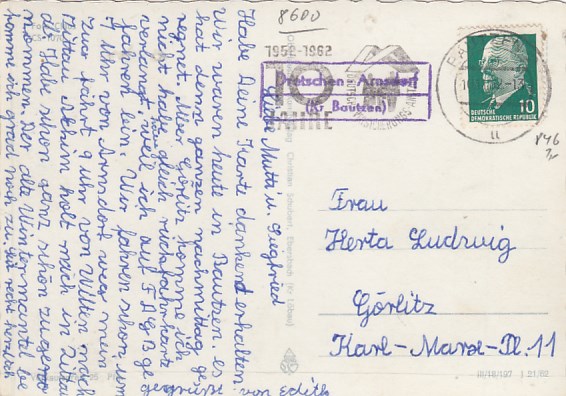 8600
1952-1962
10
JAHRE
Dretschen-Arnsdorf
(Kr. Bautzen)
10
DEUTSCHE
DEMOKRATISCHE REPUBLIK
Liebe Mutti u. Siegfried
Habe Deine Karte dankend erhalten.
Wir waren heute in Bautzen, es
hat den ganzen nachmittag ge
regnet. Mit Görlitz komme ich
nicht habe gleich rückfahrkarte
verlangt weil ich auf FDGB ge
fahren bin. Wir fahren schon um
7 Uhr von Arnsdorf weg mein
Zug geht 9 Uhr von Wilthen nach
Zittau Achim holt mich in Zittau
ab. Habe schon ganz schön zugenom
men. Der alte Wintermantel be
komme ich grad noch zu. Mit recht herzlich
grüße von Edith
Frau
Herta Ludwig
Görlitz
Karl-Marx-Pl. 11
Christian Schubert, Ebersbach (Kr. Löbau)
III/18/197 J 21/62